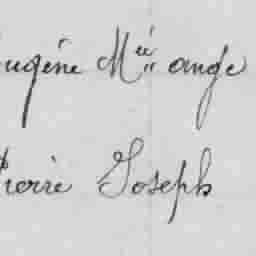 Eugène Mie ange
Pierre Joseph